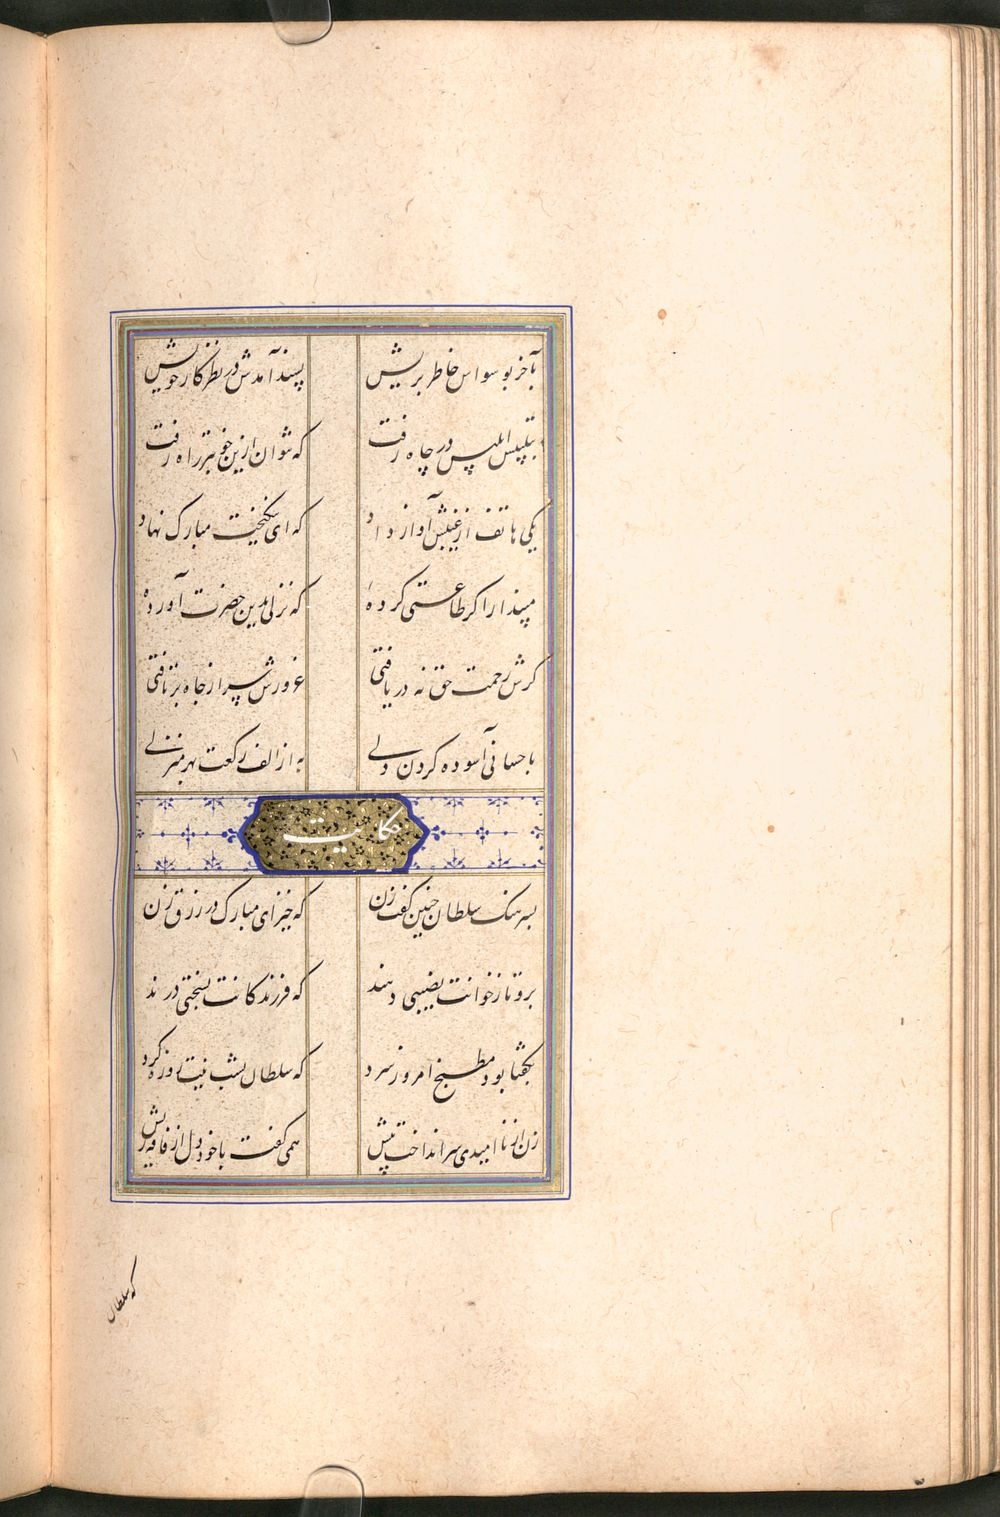 بآخر بوسواس خاطر پریش پسند آمدش در نظر کار خویش
بتلبیس ابلیس در چاه رفت که نتوان ازین خوبتر راه رفت
یکی هاتف از غیبش آواز داد که ای نیکبخت مبارک نهاد
مپندار اگر طاعتی کردهٔ که نزلی بدین حضرت آوردهٔ
گرش رحمت حق نه دریافتی غرورش سر از جاه برتافتی
باحسانی آسوده کردن دلی به از الف رکعت بهر منزلی
حکایت
بسرهنگ سلطان چنین گفت زن که خیز ای مبارک در رزق زن
برو تا ز خوانت نصیبی دهند که فرزندکانت بسختی درند
بگفتا بود مطبخ امروز سرد که سلطان بشب نیت روزه کرد
زن از ناامیدی سر انداخت پیش همی گفت با خود دل از فاقه ریش
که سلطان